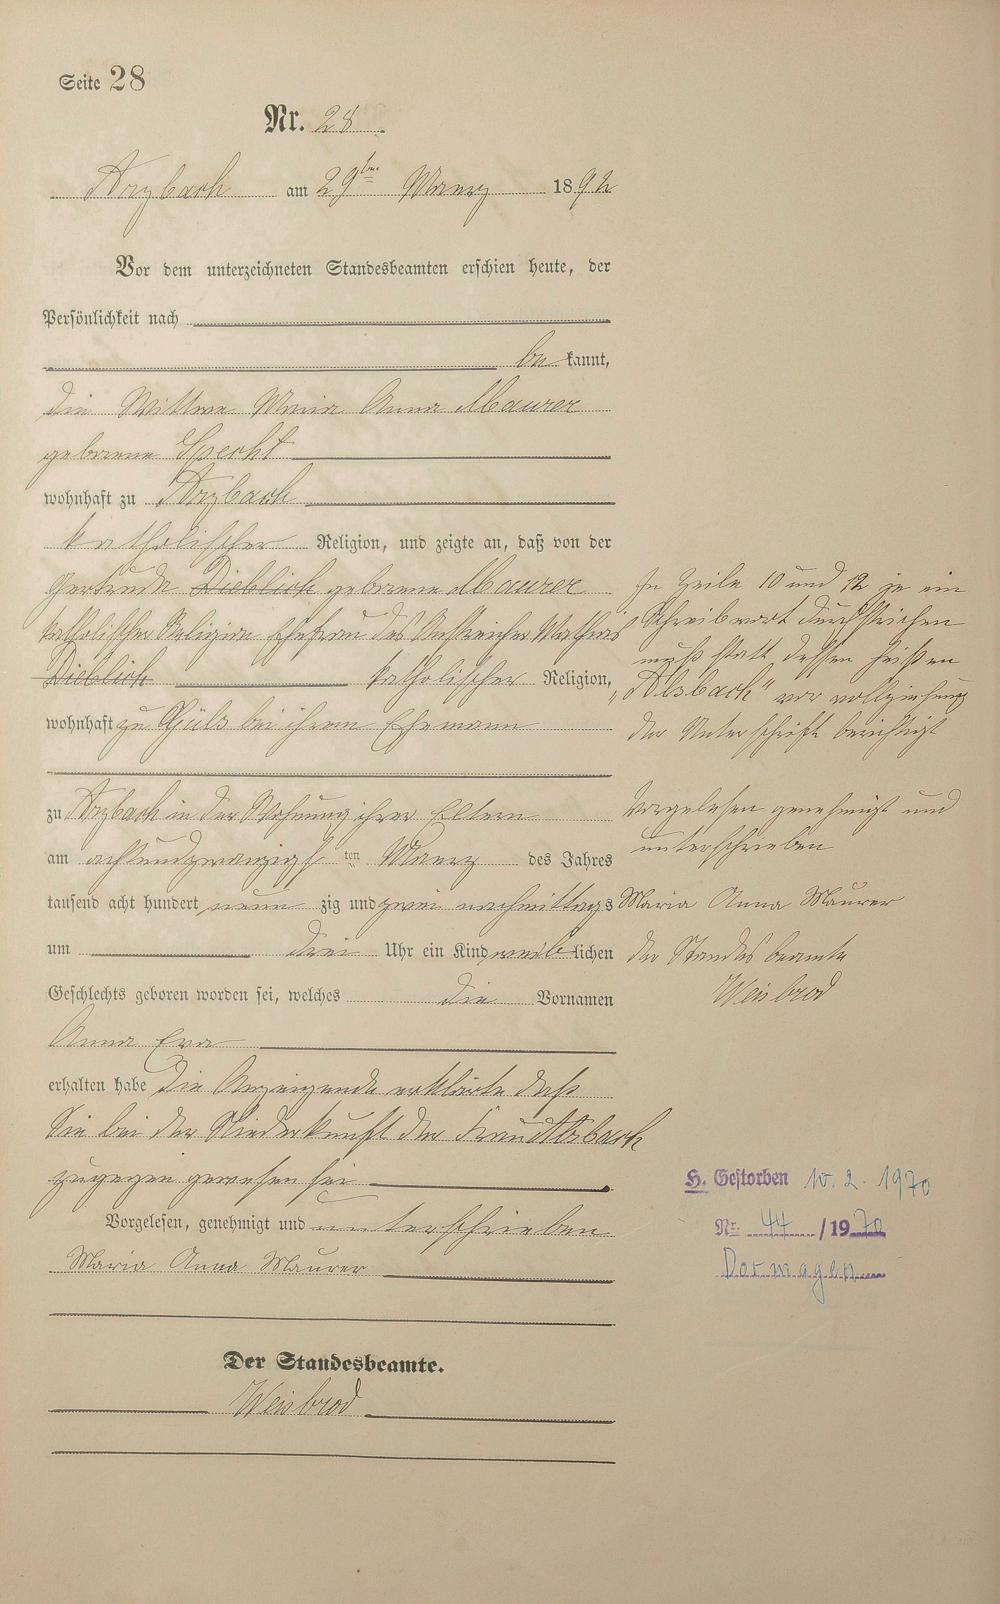 Seite 28
Nr. 28
Arzbach am 29ten Maerz 1892
Vor dem unterzeichneten Standesbeamten erschien heute, der
Persönlichkeit nach
be kannt,
die Wittwe Maria Anna Maurer
geborene Specht
wohnhaft zu Arzbach
katholischer Religion, und zeigte an, daß von der
Gertrude Dieblich geborene Maurer
katholischer Religion Ehefrau des Anstreicher Mathias
Dieblich katholischer Religion,
wohnhaft zu Güls bei ihrem Ehemann
zu Arzbach in der Wohnung ihrer Eltern
am achtundzwanzigsten Maerz des Jahres
tausend acht hundert neun zig und zwei nachmittags
um drei Uhr ein Kind weiblichen
Geschlechts geboren worden sei, welches die Vornamen
Anna Eva
erhalten habe die Anzeigende erklärte daß
Sie bei der Niederkunft der Frau Alsbach
zugegen gewesen sei
Vorgelesen, genehmigt und unterschrieben
Maria Anna Maurer
Der Standesbeamte.
Weisbrod
In Zeile 10 und 12 je ein
Schreibwort durchstrichen
muß statt dessen heißen
„Alsbach" vor vollziehung
der Unterschrift berichtigt
Vorgelesen genehmigt und
unterschrieben
Maria Anna Maurer
der Standesbeamte
Weisbrod
H. Gestorben 10. 2. 1970
Nr. 44 / 1970
Dormagen